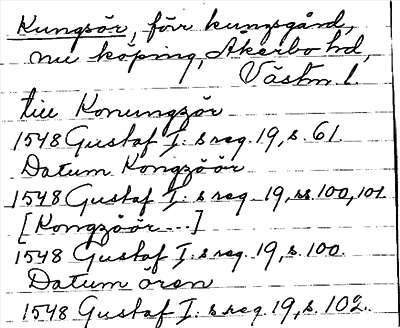 Kungsör, förr kungsgård,
nu köping, Åkerbo hd,
Västm. l.
till Konungzör
1548 Gustaf I:s reg. 19, s. 61.
Datum Kongzöör
1548 Gustaf I:s reg. 19, ss. 100, 101
[Kongzöör ---]
1548 Gustaf I:s reg. 19, s. 100.
Datum ören
1548 Gustaf I:s reg. 19, s. 102.